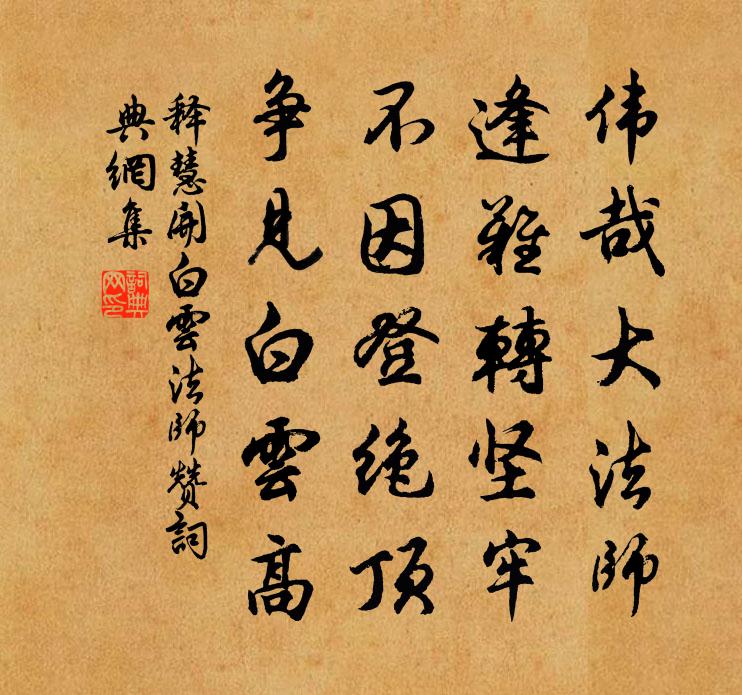 伟哉大法师
逢難轉坚牢
不因登绝顶
争見白雲高
释慧開白雲法师赞詞
典網集
詞典网印